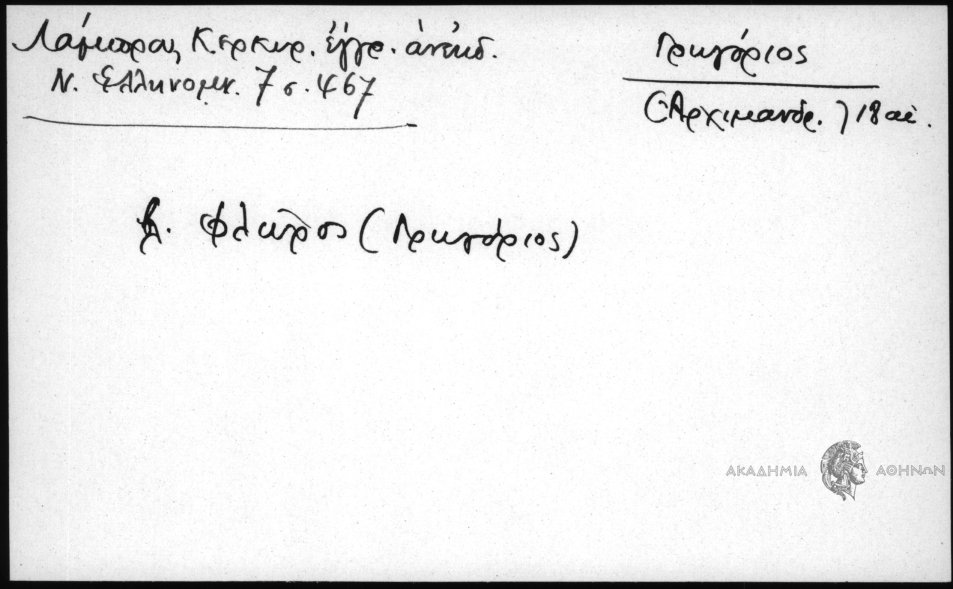 Λάμπρου, Κερκυρ. ἔγγρ. ἀνέκδ.
Ν. Ἑλληνομν. 7 σ. 467
Γρηγόριος
(Ἀρχιμανδρ.) 18 αἰ.
β. Φλῶρος (Γρηγόριος)
ΑΚΑΔΗΜΙΑ ΑΘΗΝΩΝ